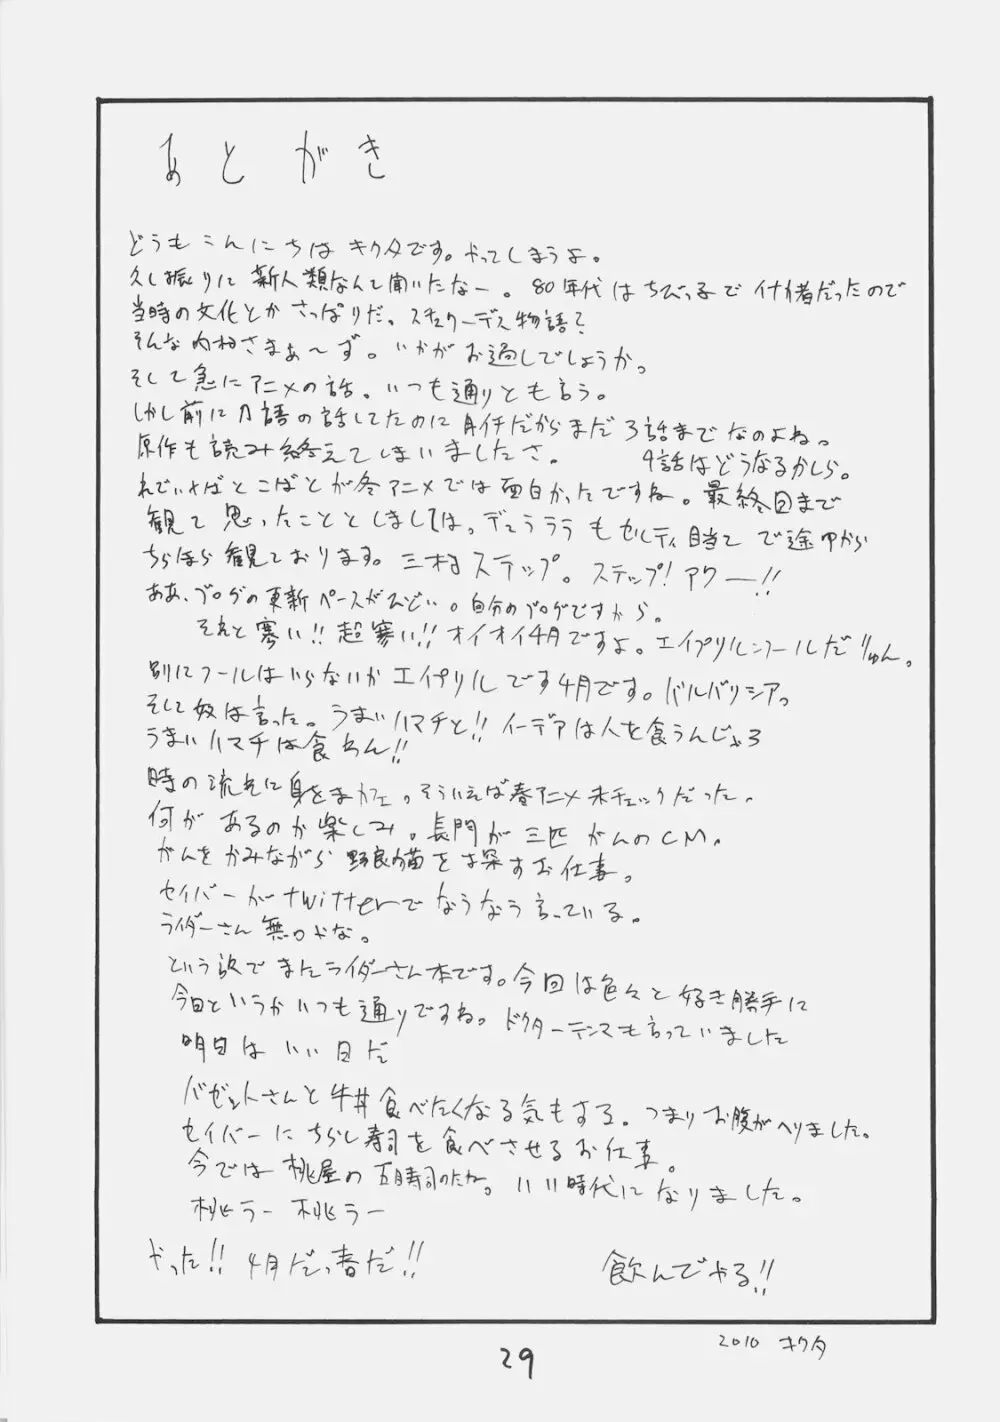 あとがき
どうもこんにちはキクタです。やってしまうよ。
久し振りに新人類なんて聞いたなー。80年代はちびっ子で付者だったので
当時の文化とかさっぱりだ。スチュワーデス物語?
そんな内村さまぁ〜ず。いかがお過しでしょうか。
そして急にアニメの話。いつも通りとも言う。
しかし前に刀語の話してたのに月イチだからまだ3話までなのよね。
原作も読み終えてしまいましたさ。 4話はどうなるかしら。
れでぃ×ばとこばとが冬アニメでは面白かったですね。最終回まで
観て思ったこととしましては。デュラララもセルティ目当てで途中から
ちらほら観ております。三村ステップ。ステップ!アワー!!
ああ、ブログの更新ペースがひどい。自分のブログですから。
それと寒い!!超寒い!!オイオイ4月ですよ。エイプリルフールだりゅん。
別にフールはいらないかエイプリルです4月です。バルバリシアっ
そして奴は言った。うまいハマチと!!イーデアは人を食うんじゃろ
うまいハマチは食わん!!
時の流れに身をまカフェ。そういえば春アニメ未チェックだった。
何があるのか楽しみ。長門が三匹がんのCM。
がんをかみながら野良猫を探すお仕事。
セイバーがtwitterでなうなう言っている。
ライダーさん無口やな。
という訳でまたライダーさん本です。今回は色々と好き勝手に
今回というかいつも通りですね。ドクターテンマも言っていました
明日はいい日だ
バゼットさんと牛丼食べたくなる気もする。つまりお腹がへりました。
セイバーにちらし寿司を食べさせるお仕事。
今では桃屋の五目寿司のたね。いい時代になりました。
桃ラー 桃ラー
やった!!4月だっ春だ!! 飲んでやる!!
2010 キクタ
29